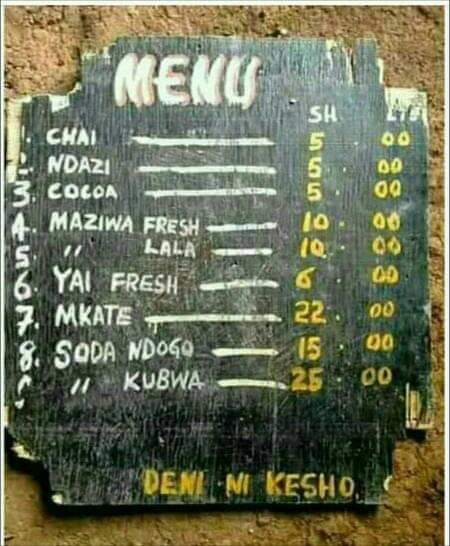 MENU
SH CTS
1. CHAI 5 . 00
2. NDAZI 5 . 00
3. COCOA 5 . 00
4. MAZIWA FRESH 10 . 00
5. " LALA 10 . 00
6. YAI FRESH 6 . 00
7. MKATE 22 . 00
8. SODA NDOGO 15 . 00
9 " KUBWA 25 . 00
DENI NI KESHO